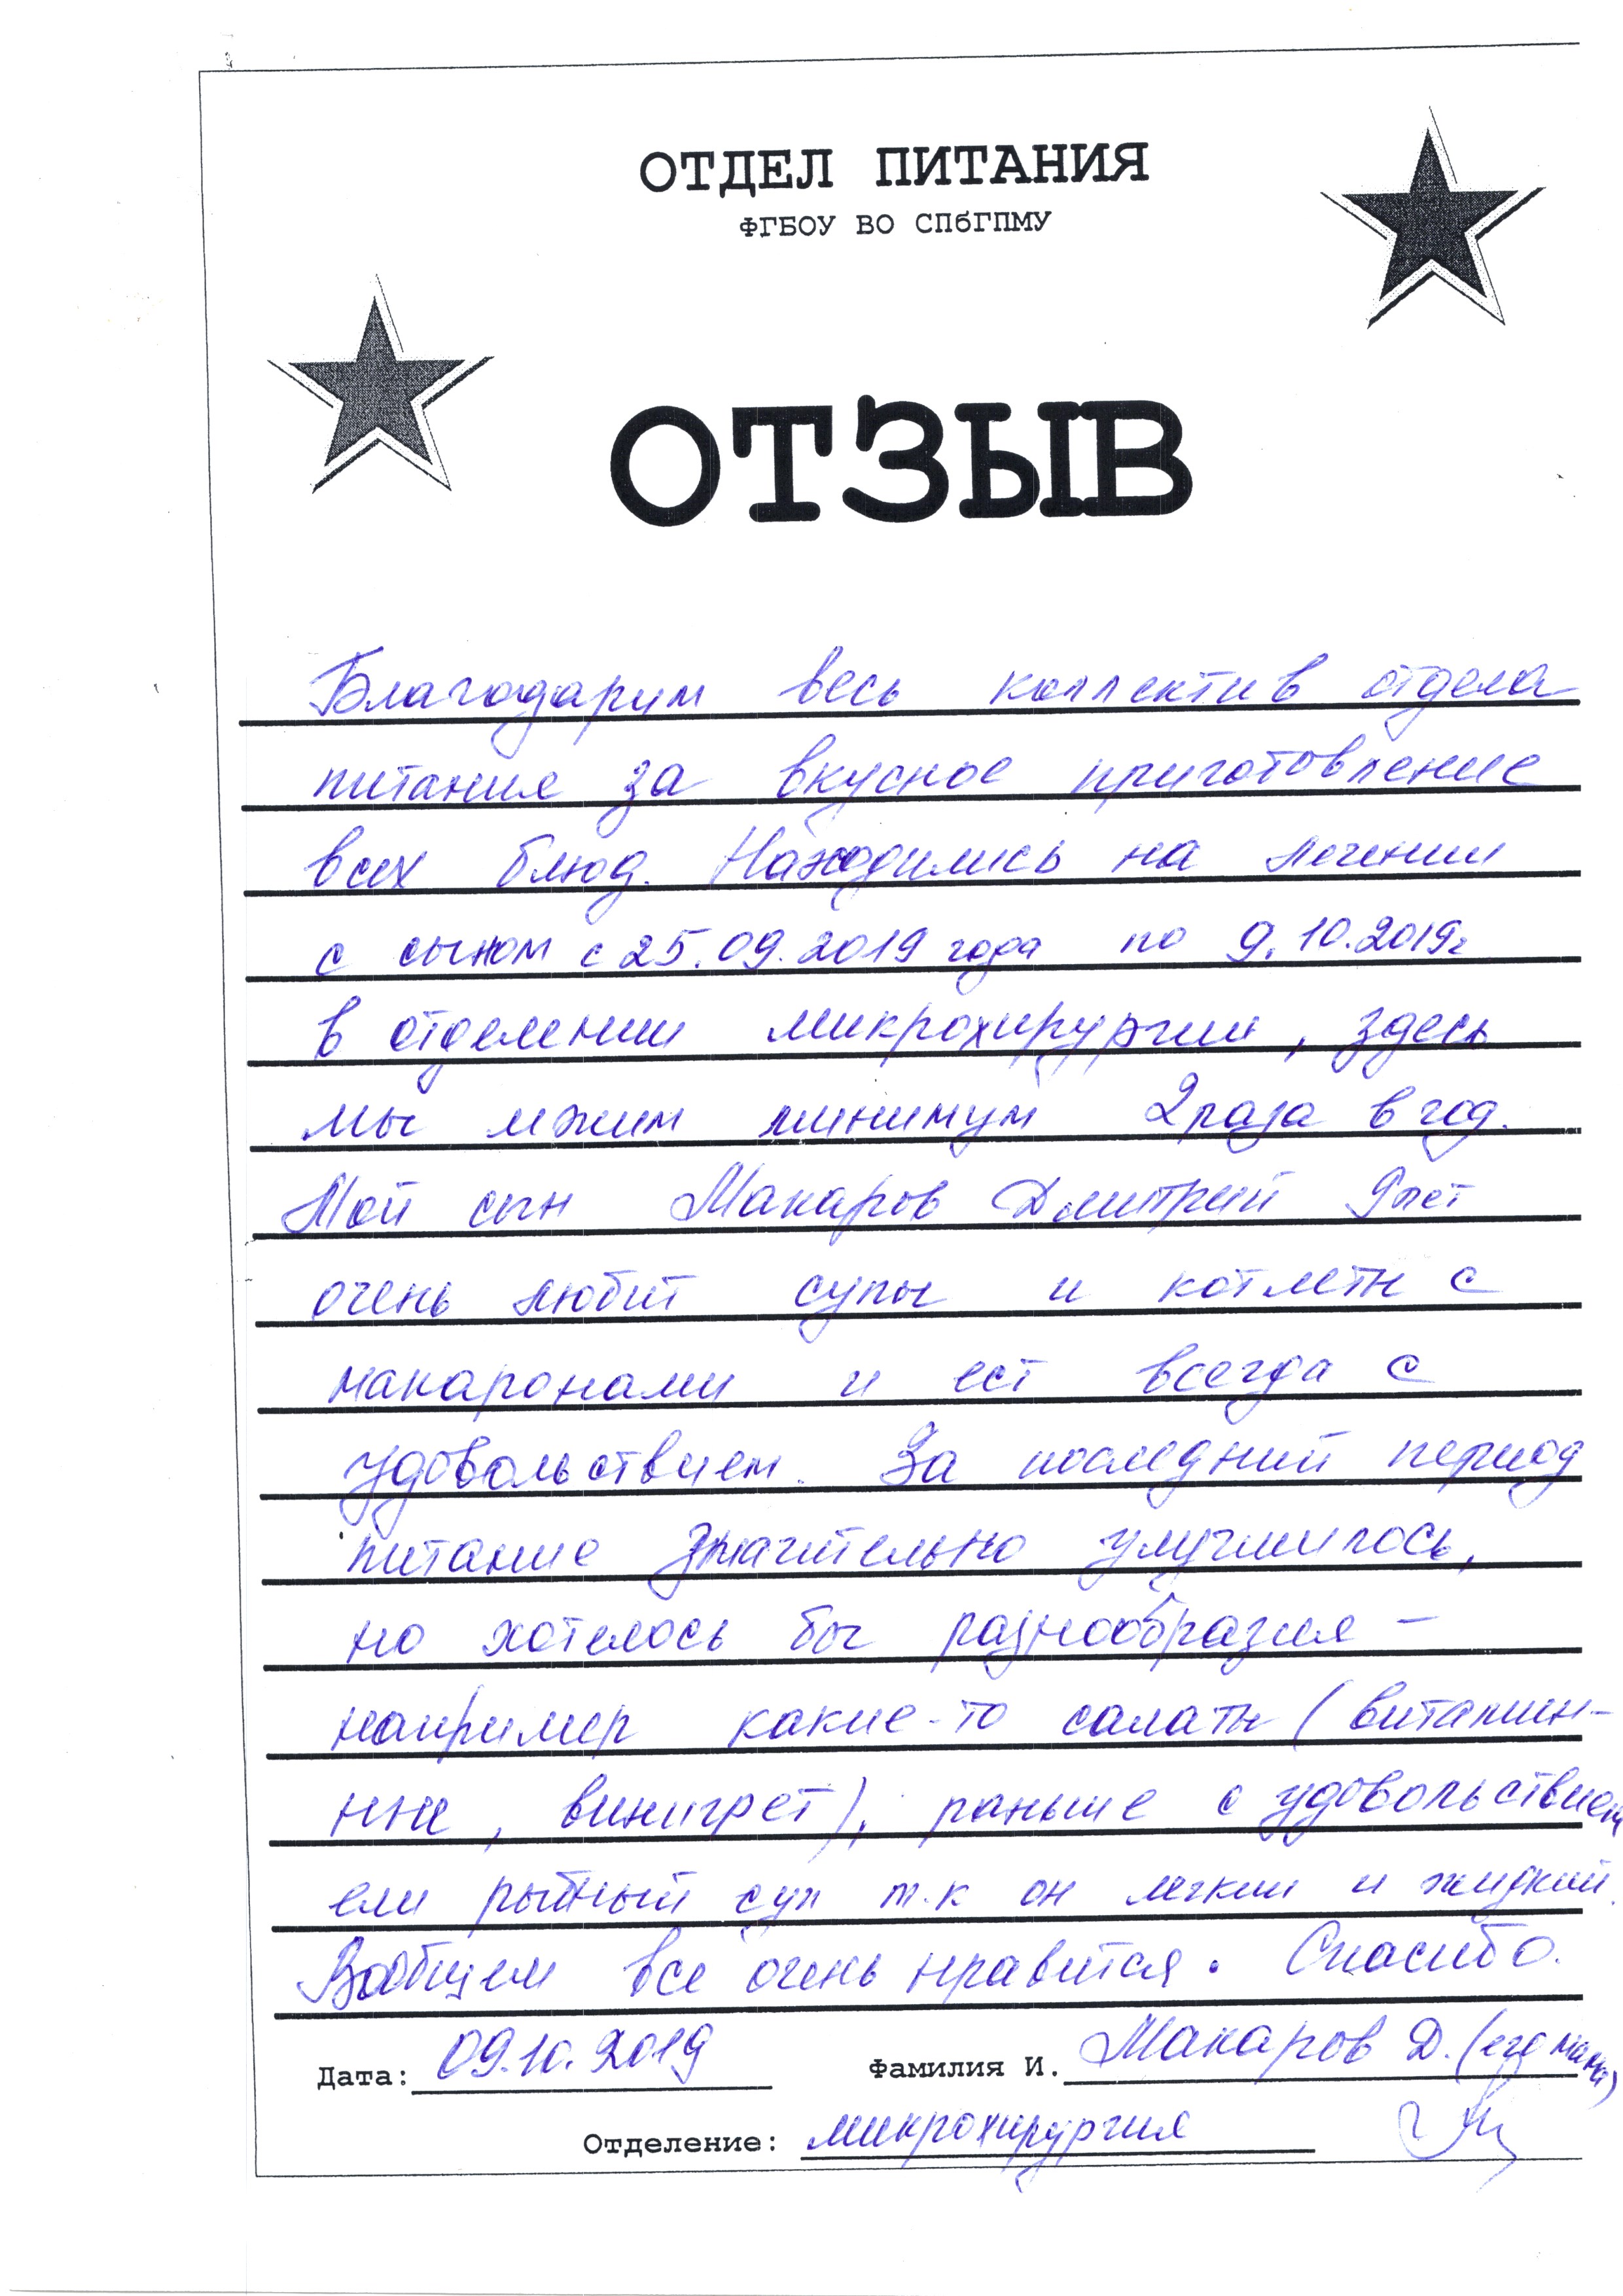 ОТДЕЛ ПИТАНИЯ
ФГБОУ ВО СПбГПМУ
ОТЗЫВ
Благодарим весь коллектив отдела
питания за вкусное приготовление
всех блюд. Находились на лечении
с сыном с 25.09.2019 года по 9.10.2019г
в отделении микрохирургии, здесь
мы лежим минимум 2 раза в год.
Мой сын Макаров Дмитрий 9 лет
очень любит супы и котлеты с
макаронами и ест всегда с
удовольствием. За последний период
питание значительно улучшилось,
но хотелось бы разнообразия -
например какие-то салаты (витамин-
ные, винигрет), раньше с удовольствием
ели рыбный суп т.к он легкий и жидкий.
Вообщем все очень нравится. Спасибо.
Дата: 09.10.2019 Фамилия И. Макаров Д. (его мама)
Отделение: микрохирургия